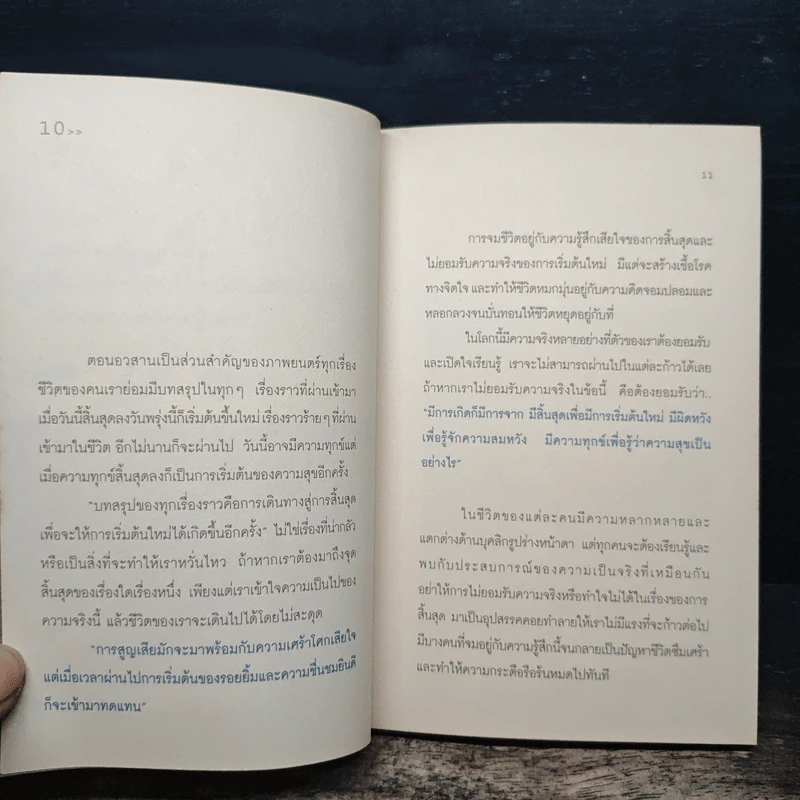 10>>
ตอนอวสานเป็นส่วนสำคัญของภาพยนตร์ทุกเรื่อง
ชีวิตของคนเราย่อมมีบทสรุปในทุกๆ เรื่องราวที่ผ่านเข้ามา
เมื่อวันนี้สิ้นสุดลงวันพรุ่งนี้ก็เริ่มต้นขึ้นใหม่ เรื่องราวร้ายๆ ที่ผ่าน
เข้ามาในชีวิต อีกไม่นานก็จะผ่านไป วันนี้อาจมีความทุกข์แต่
เมื่อความทุกข์สิ้นสุดลงก็เป็นการเริ่มต้นของความสุขอีกครั้ง
"บทสรุปของทุกเรื่องราวคือการเดินทางสู่การสิ้นสุด
เพื่อจะให้การเริ่มต้นใหม่ได้เกิดขึ้นอีกครั้ง" ไม่ใช่เรื่องที่น่ากลัว
หรือเป็นสิ่งที่จะทำให้เราหวั่นไหว ถ้าหากเราต้องมาถึงจุด
สิ้นสุดของเรื่องใดเรื่องหนึ่ง เพียงแต่เราเข้าใจความเป็นไปของ
ความจริงนี้ แล้วชีวิตของเราจะเดินไปได้โดยไม่สะดุด
"การสูญเสียมักจะมาพร้อมกับความเศร้าโศกเสียใจ
แต่เมื่อเวลาผ่านไปการเริ่มต้นของรอยยิ้มและความชื่นชมยินดี
ก็จะเข้ามาทดแทน"
11
การจมชีวิตอยู่กับความรู้สึกเสียใจของการสิ้นสุดและ
ไม่ยอมรับความจริงของการเริ่มต้นใหม่ มีแต่จะสร้างเชื้อโรค
ทางจิตใจ และทำให้ชีวิตหมกมุ่นอยู่กับความคิดจอมปลอมและ
หลอกลวงจนบั่นทอนให้ชีวิตหยุดอยู่กับที่
ในโลกนี้มีความจริงหลายอย่างที่ตัวของเราต้องยอมรับ
และเปิดใจเรียนรู้ เราจะไม่สามารถผ่านไปในแต่ละก้าวได้เลย
ถ้าหากเราไม่ยอมรับความจริงในข้อนี้ คือต้องยอมรับว่า..
"มีการเกิดก็มีการจาก มีสิ้นสุดเพื่อมีการเริ่มต้นใหม่ มีผิดหวัง
เพื่อรู้จักความสมหวัง มีความทุกข์เพื่อรู้ว่าความสุขเป็น
อย่างไร"
ในชีวิตของแต่ละคนมีความหลากหลายและ
แตกต่างด้านบุคลิกรูปร่างหน้าตา แต่ทุกคนจะต้องเรียนรู้และ
พบกับประสบการณ์ของความเป็นจริงที่เหมือนกัน
อย่าให้การไม่ยอมรับความจริงหรือทำใจไม่ได้ในเรื่องของการ
สิ้นสุด มาเป็นอุปสรรคคอยทำลายให้เราไม่มีแรงที่จะก้าวต่อไป
มีบางคนที่จมอยู่กับความรู้สึกนี้จนกลายเป็นปัญหาชีวิตซึมเศร้า
และทำให้ความกระตือรือร้นหมดไปทันที